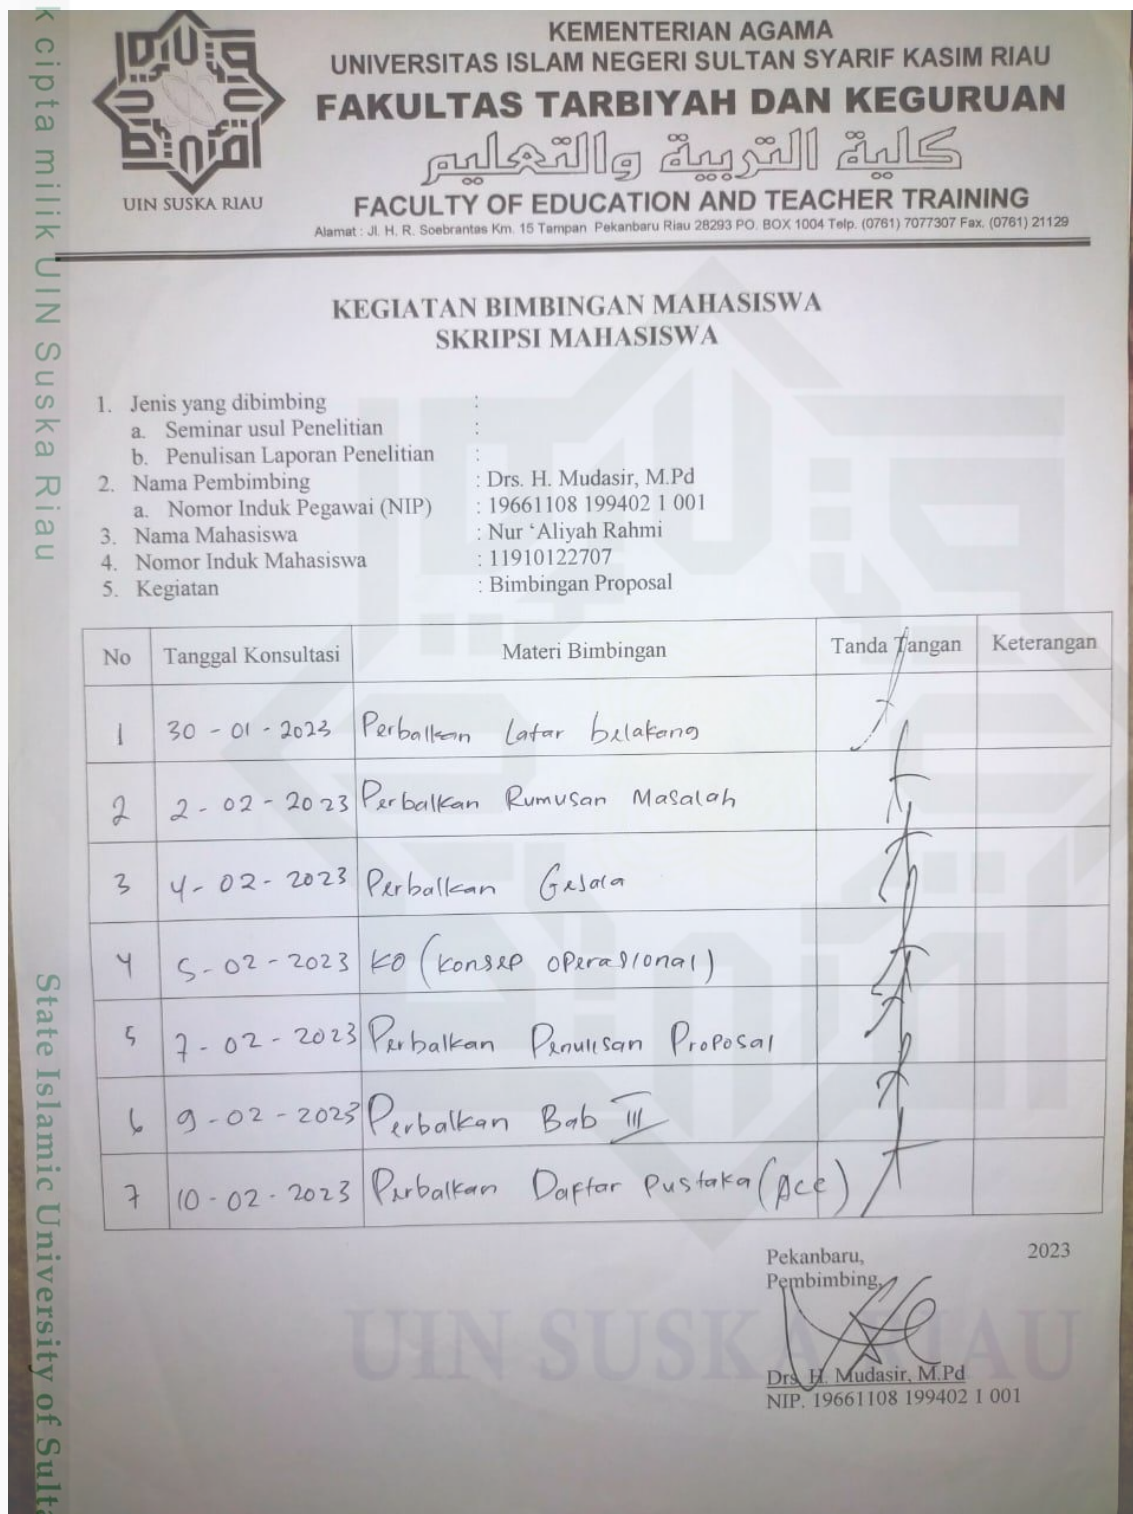 KEMENTERIAN AGAMA
UNIVERSITAS ISLAM NEGERI SULTAN SYARIF KASIM RIAU
FAKULTAS TARBIYAH DAN KEGURUAN
كلية التربية والتعليم
FACULTY OF EDUCATION AND TEACHER TRAINING
Alamat : Jl. H. R. Soebrantas Km. 15 Tampan Pekanbaru Riau 28293 PO. BOX 1004 Telp. (0761) 7077307 Fax. (0761) 21129
UIN SUSKA RIAU
KEGIATAN BIMBINGAN MAHASISWA
SKRIPSI MAHASISWA
1. Jenis yang dibimbing :
a. Seminar usul Penelitian :
b. Penulisan Laporan Penelitian :
2. Nama Pembimbing : Drs. H. Mudasir, M.Pd
a. Nomor Induk Pegawai (NIP) : 19661108 199402 1 001
3. Nama Mahasiswa : Nur ‘Aliyah Rahmi
4. Nomor Induk Mahasiswa : 11910122707
5. Kegiatan : Bimbingan Proposal
No Tanggal Konsultasi Materi Bimbingan Tanda Tangan Keterangan
1 30 - 01 - 2023 Perbaikan Latar belakang
2 2 - 02 - 2023 Perbaikan Rumusan Masalah
3 4 - 02 - 2023 Perbaikan Gejala
4 5 - 02 - 2023 KO (Konsep Operasional)
5 7 - 02 - 2023 Perbaikan Penulisan Proposal
6 9 - 02 - 2023 Perbaikan Bab III
7 10 - 02 - 2023 Perbaikan Daftar Pustaka (Acc)
Pekanbaru, 2023
Pembimbing,
Drs. H. Mudasir, M.Pd
NIP. 19661108 199402 1 001
UIN SUSKA RIAU
k cipta milik UIN Suska Riau
State Islamic University of Sult